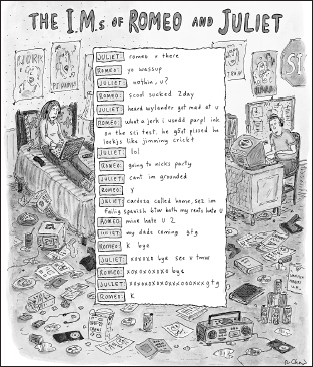 THE I.M.s OF ROMEO AND JULIET
JULIET: romeo u there
ROMEO: yo wassup
JULIET: nothin, u?
ROMEO: scool sucked 2day
JULIET: heard wylander got mad at u
ROMEO: what a jerk i usedd purpl ink
on the sci test. he gost pissed he
lookjs like jimming crickt
JULIET: lol
ROMEO: going to nicks party
JULIET: cant im grounded
ROMEO: y
JULIET: cardoza called home, sez im
failig spanish btw both my rents hate u
ROMEO: mine hate U 2
JULIET: my dads coming gtg
ROMEO: K bye
JULIET: xoxoxo bye see u tmw
ROMEO: xoxoxoxoxo bye
JULIET: gtg
ROMEO: K
BJORK
R. Chast